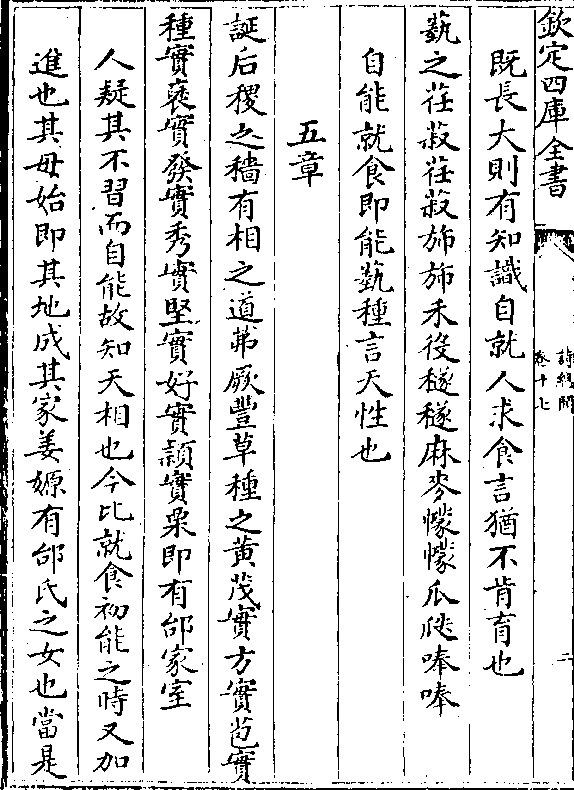 欽定四庫全書
詩經
卷十七
二
既長大則有知識自就人求食言猶不肯育也
蓺之荏菽荏菽斾斾禾役穟穟麻麥幪幪瓜瓞唪唪
自能就食即能蓺種言天性也
五章
誕后稷之穡有相之道茀厥豐草種之黄茂實方實苞實
種實襃實發實秀實堅實好實穎實栗即有邰家室
人疑其不習而自能故知天相也今比就食初能之時又加
進也其母始即其地成其家姜嫄有邰氏之女也當是